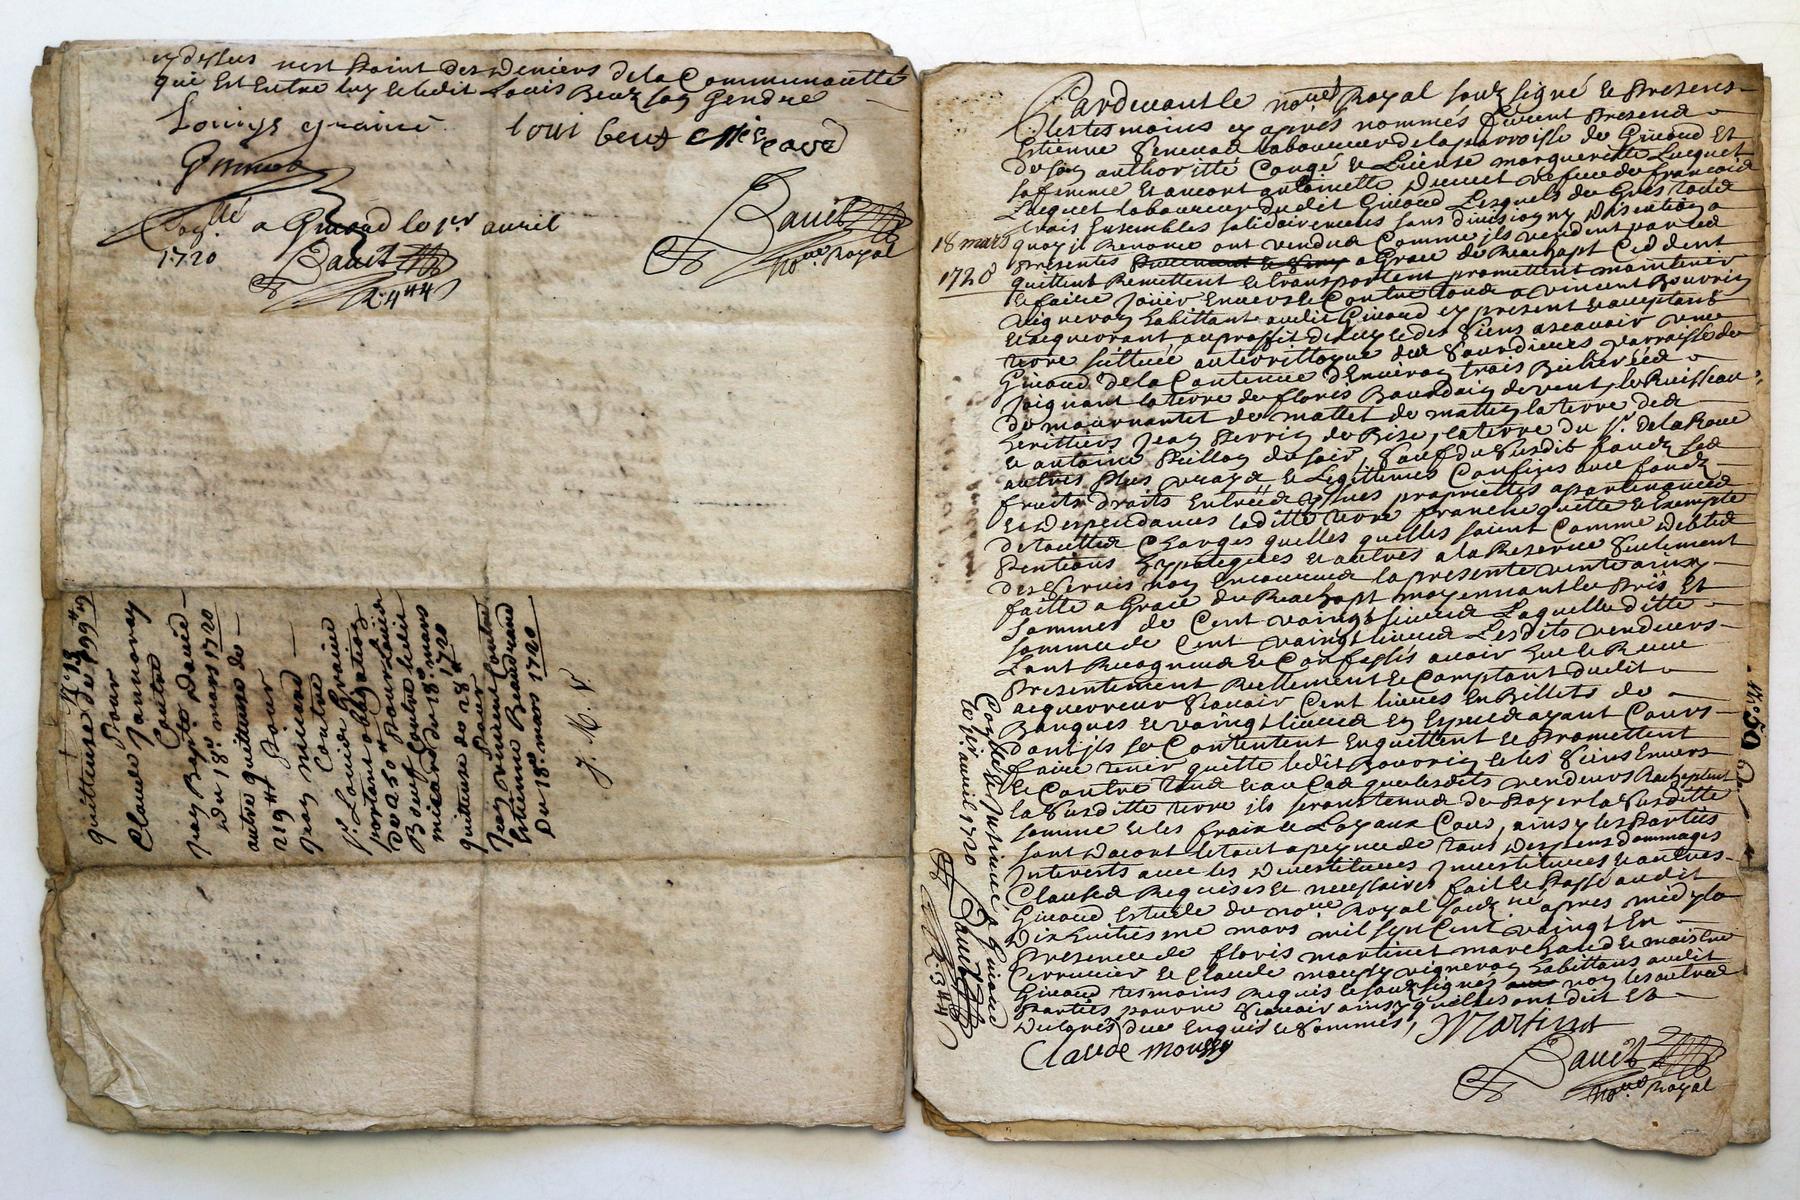 cydessus nest point des deniers de la Communautté
qui Est Entre luy et ledit Louis Beuf son Gendre
Louiys graine loui beuf
Con.llé a Givord le 1er avril
1720
Bauit
Bauit
no.re Royal
2 # 4 #
quittense de 199 #
Pour
Claude Jamoray
Contre
Jean Bapte David
du 18e mars 1720
autre quittense de
219 # Pour
Jean
Contre
Sr. Louis Graine
portant obligation
de 250 # pour Louis
Beuf Contre ledit
du 18e mars
1720
quittense de 28 #
Pour
Jean Contre
Estienne Beaudrand
Du 18e mars 1720
J. M. J.
Pardevant le no.re Royal souz signé et Presens
les tesmoins cy aprés nommés furent Presens
Estienne laboureur de la parroisse de Givord Et
de son authoritté Congé et License marguerite Luquet
sa femme Et ancore antoinette vefue de francois
Luquet laboureur dudit Givord Lesquels de Gres tous
trois Ensembles solidairement sans division ny discution a
18 mars
1720
quoy ils Renonce ont vendus Comme ils vendent par les
presentes a Grace de Reachapt Ceddent
quittent Remettent et transportent promettent maintenir
et faire Jouir Envers et Contre tous a vincent Bouvrin
vigneron habittant audit Givord cy present et acceptant
et acquerant au proffit de luy et des siens ascavoir une
terre situéé au territtoire des parroisse de
Givord de la Contenue d'Environ trois Bicheréés
Joignant la terre de floris de vent, le Ruisseau
de mournantet de mattin la terre des
heritiers Jean Perrin de Bise, la terre du Sr. de la Roue
et antoine du soir, sauf du susdit fondz les
autres Plus vrays et Legittimes Confins avec fondz
fruits droits Entréés yssues propriettes apartenances
et dependances laditte terre franche quitte et exempte
de touttes Charges quelles quelles soient Comme debtes
Pentions hypoteques et autres a la Reserve seulement
des servis non Encourus la presente vente ainsy
faitte a Grace de Reachapt moyennant le Prix Et
somme de Cent vaingt livres Laquelle ditte
somme de Cent vaingt livres Lesdits vendeurs
Ont Recognus et Confessés avoir Eue et Receue
Presentement Reellement et Comptant dudit
acquerreur scavoir Cent livres En Billets de
Banques et vaingt livres En Especes ayant Cours
dont ils se Contentent Enquittent et Promettent
faire tenir quitte ledit Bouvrin et les siens Envers
et Contre tous et au Cas que lesdits vendeurs Racheptent
la susditte terre ils seront tenus de payer la susditte
somme et les frais et Loyaux Cous, ainsy les Parties
sont Dacort le tout a peyne de tous Despens dommages
Interests avec les Devestitures Jnvestitures et autres
Clauses Requises et necessaires fait et Passé audit
Givord Estude du no.re Royal souz né apres midy le
Dix huitiesme mars mil sept Cent vaingt En
Presence de floris martinet marchand et maistre
Serrurier et Claude moussy vigneron habittans audit
Givord tesmoins Requis et souz signés non les autres
Parties pour ne scavoir ainsy quelles ont dit Et
Declarés Enquis et sommés, Martinet
Claude moussy
Bauit
no.re Royal
le 1er avril 1720
Bauit
No. 50